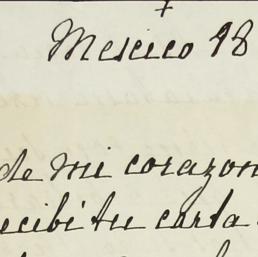 Mexico 18
de mi corazon
ecibi tu carta